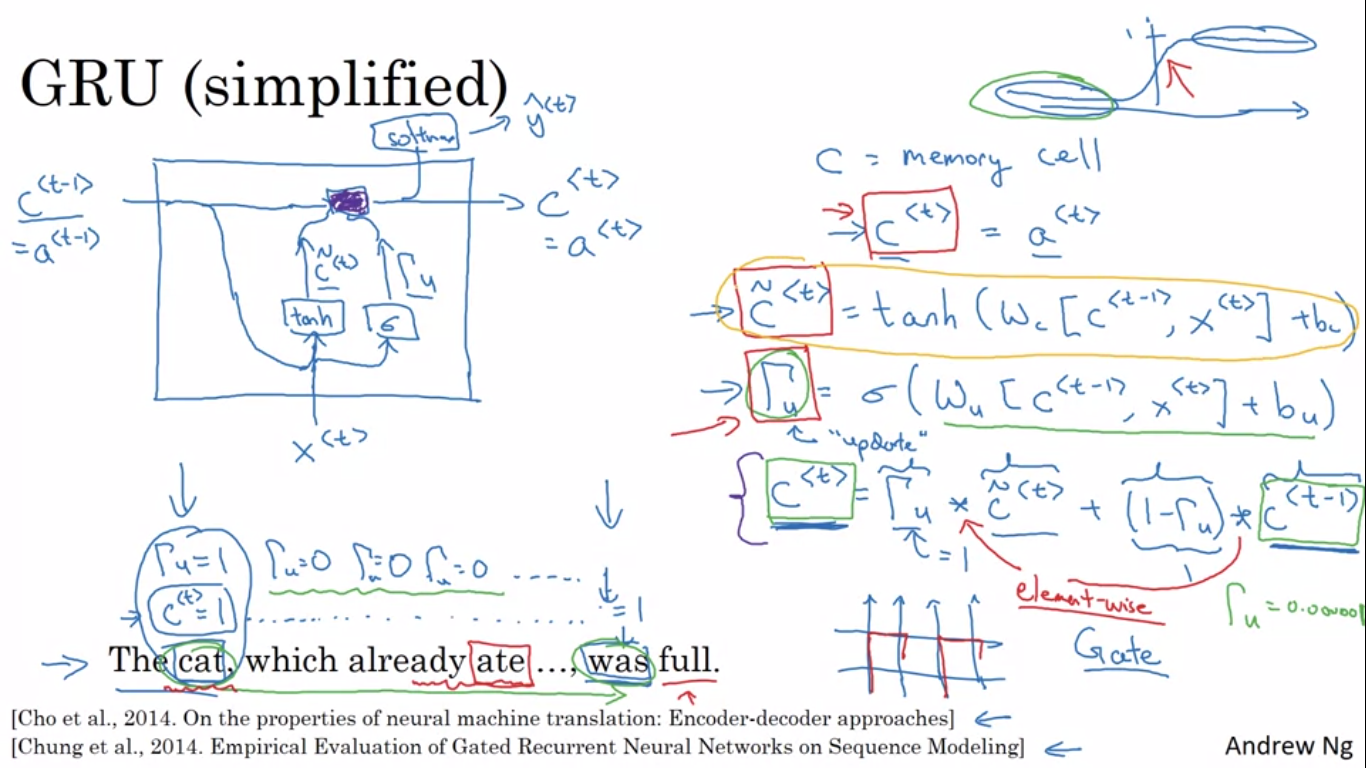 GRU (simplified)
softmax → ŷ<t>
c<t-1>
= a<t-1>
c̃<t>
Γu
tanh
σ
c<t>
= a<t>
x<t>
1
C = memory cell
c<t> = a<t>
c̃<t> = tanh (Wc [c<t-1>, x<t>] + bc)
Γu = σ (Wu [c<t-1>, x<t>] + bu)
"update"
c<t> = Γu * c̃<t> + (1-Γu) * c<t-1>
= 1
1
element-wise
Γu = 0.000001
Gate
Γu=1 Γu=0 Γu=0 Γu=0 .....
c<t>=1 .......... = 1
The cat, which already ate ..., was full.
[Cho et al., 2014. On the properties of neural machine translation: Encoder-decoder approaches]
[Chung et al., 2014. Empirical Evaluation of Gated Recurrent Neural Networks on Sequence Modeling]
Andrew Ng